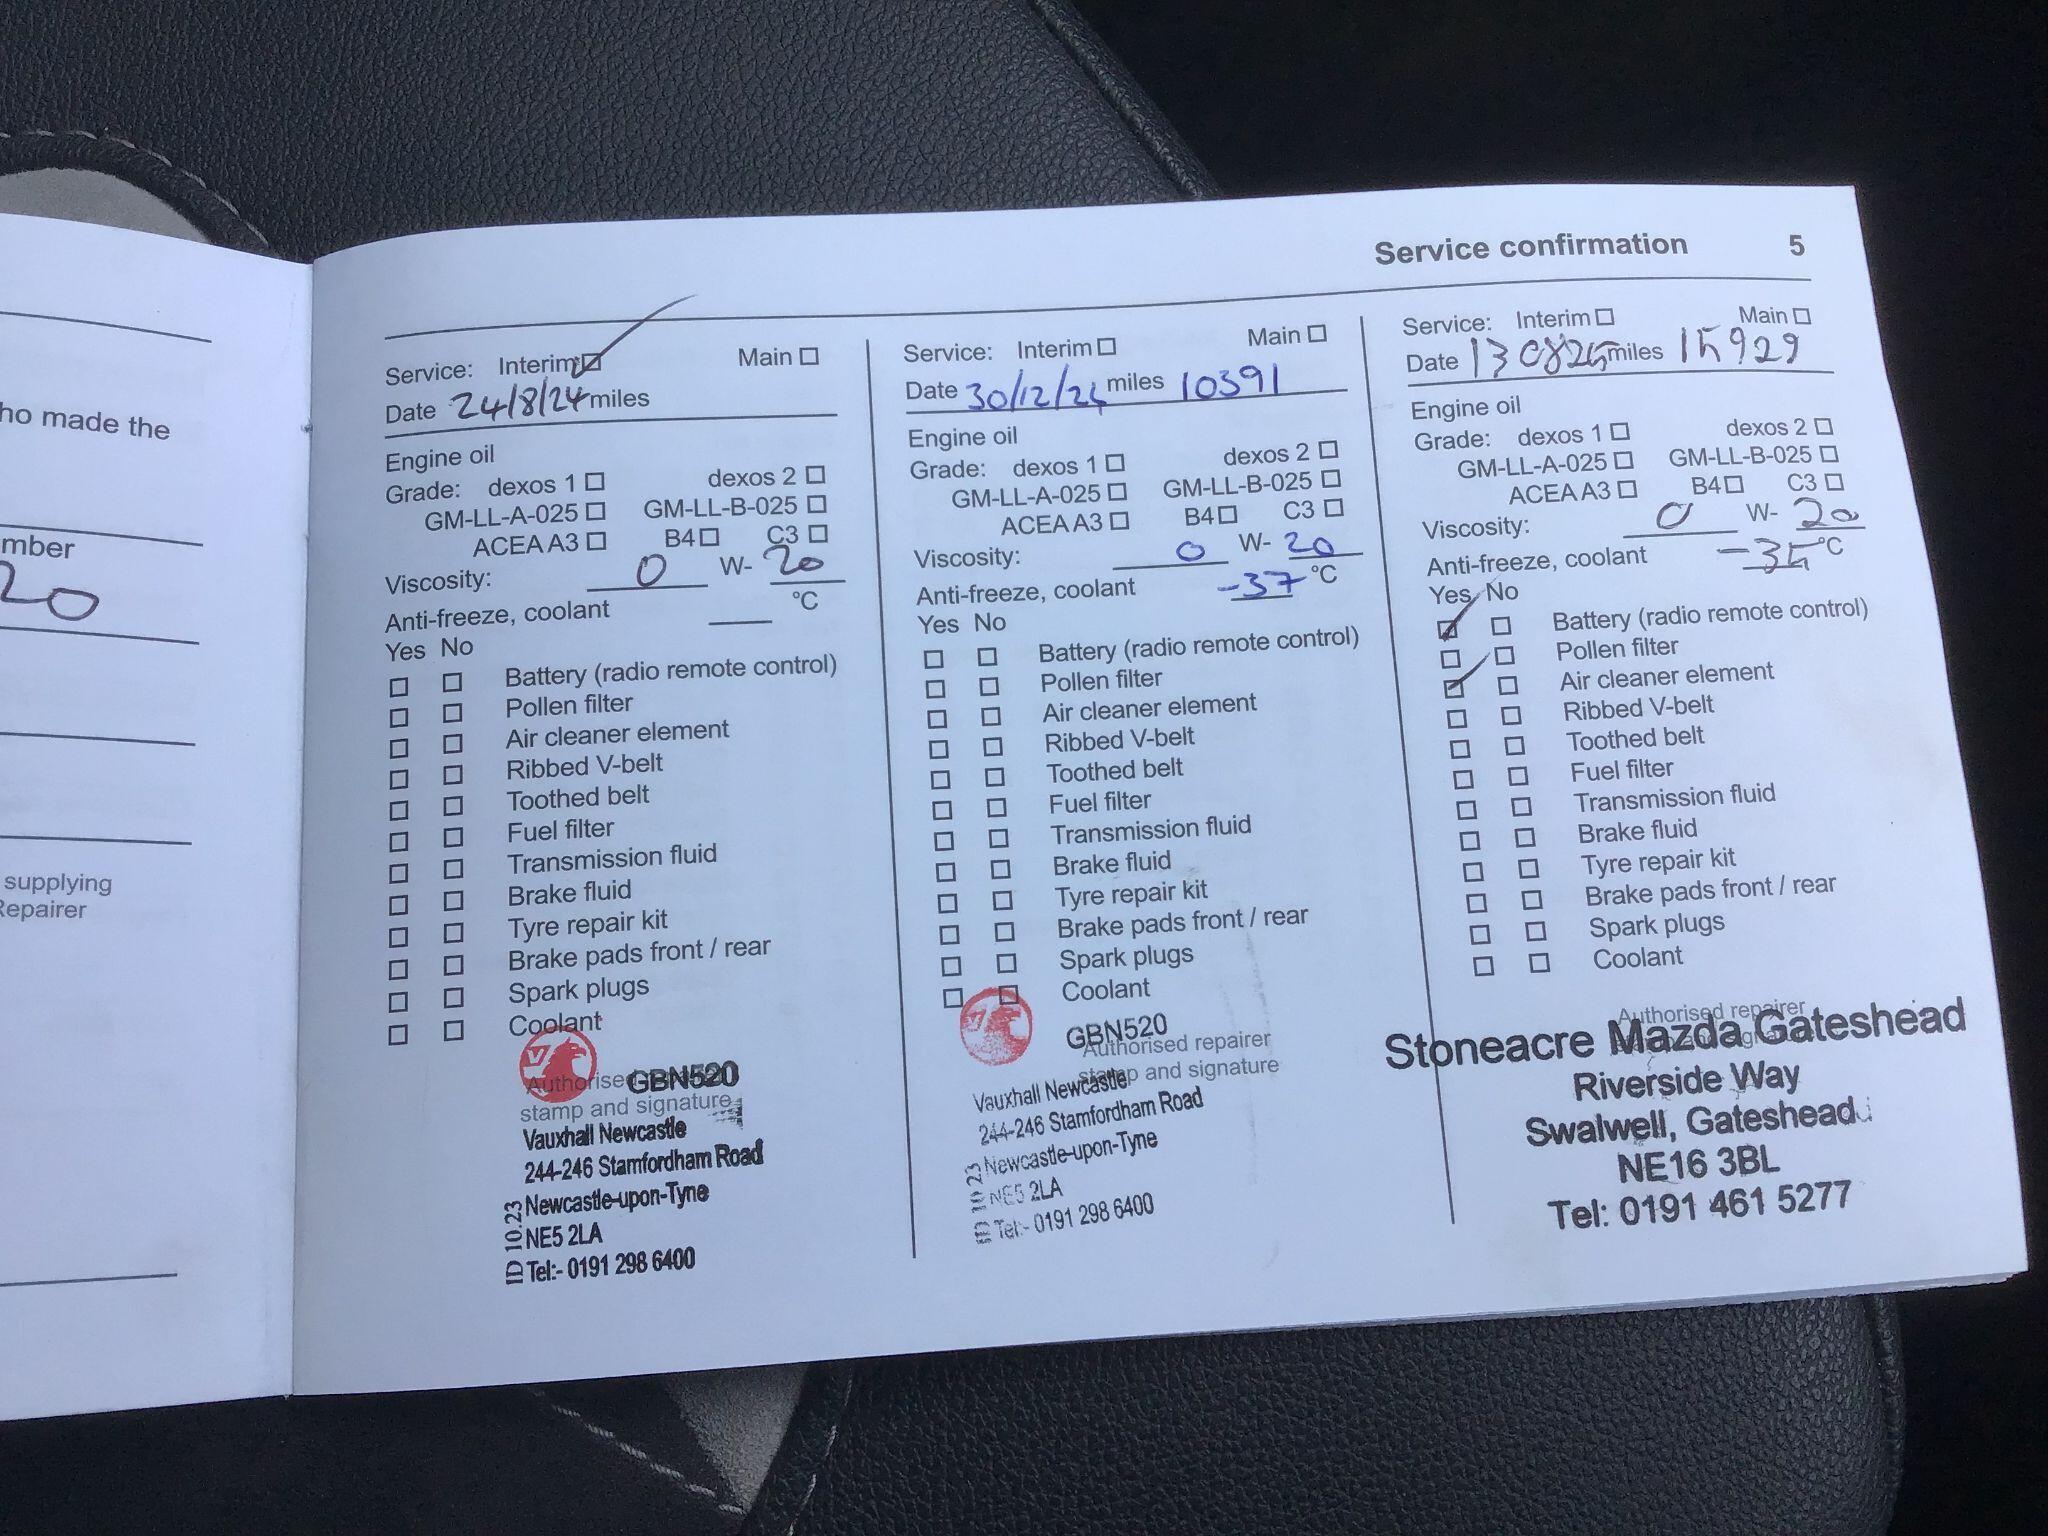 ho made the
mber
20
supplying
Repairer
Service confirmation 5
Service: Interim Main
Date 24/8/24 miles
Engine oil
Grade: dexos 1 dexos 2
GM-LL-A-025 GM-LL-B-025
ACEA A3 B4 C3
Viscosity: 0 W- 20
Anti-freeze, coolant °C
Yes No
Battery (radio remote control)
Pollen filter
Air cleaner element
Ribbed V-belt
Toothed belt
Fuel filter
Transmission fluid
Brake fluid
Tyre repair kit
Brake pads front / rear
Spark plugs
Coolant
GBN520
stamp and signature
Vauxhall Newcastle
244-246 Stamfordham Road
Newcastle-upon-Tyne
NE5 2LA
Tel:- 0191 298 6400
ID 10.23
Service: Interim Main
Date 30/12/24 miles 10391
Engine oil
Grade: dexos 1 dexos 2
GM-LL-A-025 GM-LL-B-025
ACEA A3 B4 C3
Viscosity: 0 W- 20
Anti-freeze, coolant -37 °C
Yes No
Battery (radio remote control)
Pollen filter
Air cleaner element
Ribbed V-belt
Toothed belt
Fuel filter
Transmission fluid
Brake fluid
Tyre repair kit
Brake pads front / rear
Spark plugs
Coolant
GBN520
Authorised repairer
stamp and signature
Vauxhall Newcastle
244-246 Stamfordham Road
Newcastle-upon-Tyne
NE5 2LA
Tel:- 0191 298 6400
ID 10.23
Service: Interim Main
Date 130825 miles 15929
Engine oil
Grade: dexos 1 dexos 2
GM-LL-A-025 GM-LL-B-025
ACEA A3 B4 C3
Viscosity: 0 W- 20
Anti-freeze, coolant -35 °C
Yes No
Battery (radio remote control)
Pollen filter
Air cleaner element
Ribbed V-belt
Toothed belt
Fuel filter
Transmission fluid
Brake fluid
Tyre repair kit
Brake pads front / rear
Spark plugs
Coolant
Authorised repairer
Stoneacre Mazda Gateshead
Riverside Way
Swalwell, Gateshead
NE16 3BL
Tel: 0191 461 5277